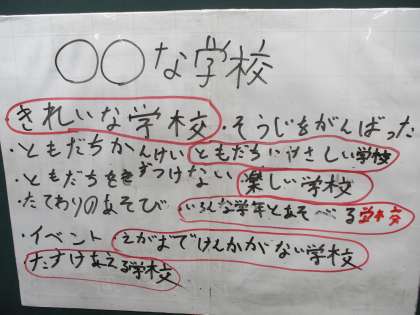 ○○な学校
きれいな学校 ・そうじをがんばった
・ともだちかんけい ともだちにやさしい学校
・ともだちをきずつけない 楽しい学校
・たてわりのあそび いろんな学年とあそべる学校
・イベント えがおでけんかがない学校
たすけあえる学校